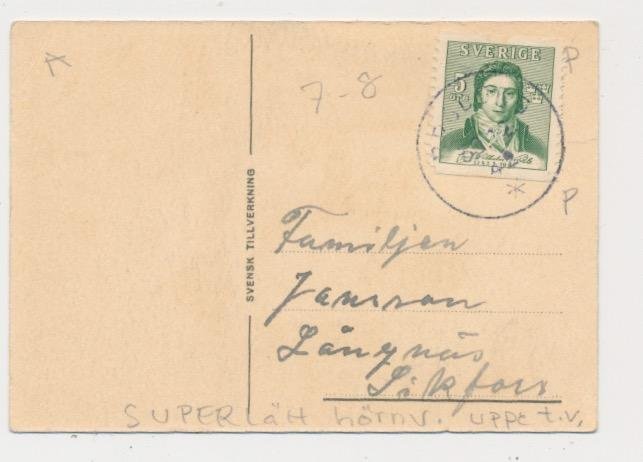 SVERIGE
5
ÖRE
7-8
SVENSK TILLVERKNING
Familjen
Jansson
Långnäs
Sikfors
SUPERlätt hörnv. uppe t.v.
A
P
P